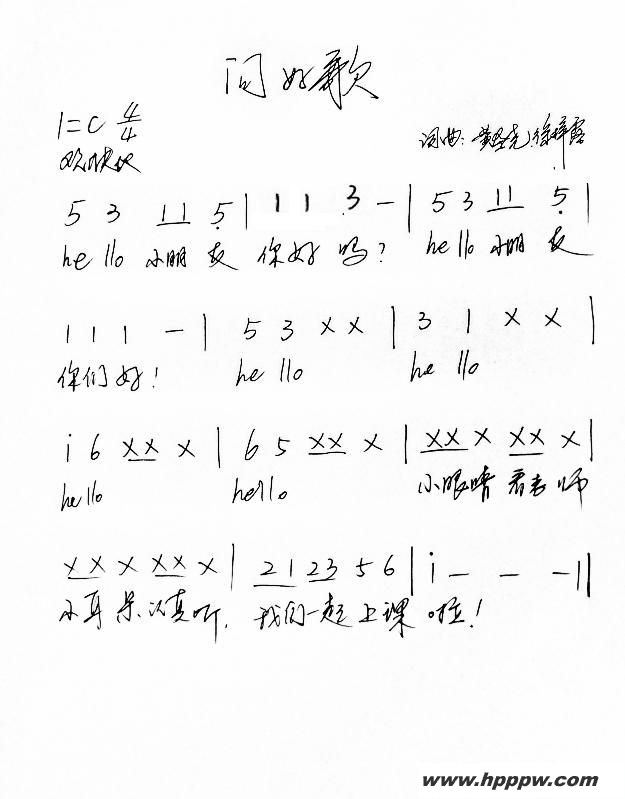 问好歌
1=C 4/4
欢快地
词曲:
5 3 1 1 5̣ | 1 1 3 - | 5 3 1 1 5̣ |
hello 小朋友 你好吗? hello 小朋友
1 1 1 - | 5 3 X X | 3 1 X X |
你们好! hello hello
i 6 X X X | 6 5 X X X | X X X X X X |
hello hello 小眼睛 看老师
X X X X X X | 2 1 2 3 5 6 | i - - - ||
小耳朵认真听, 我们一起上课啦!
www.hpppw.com